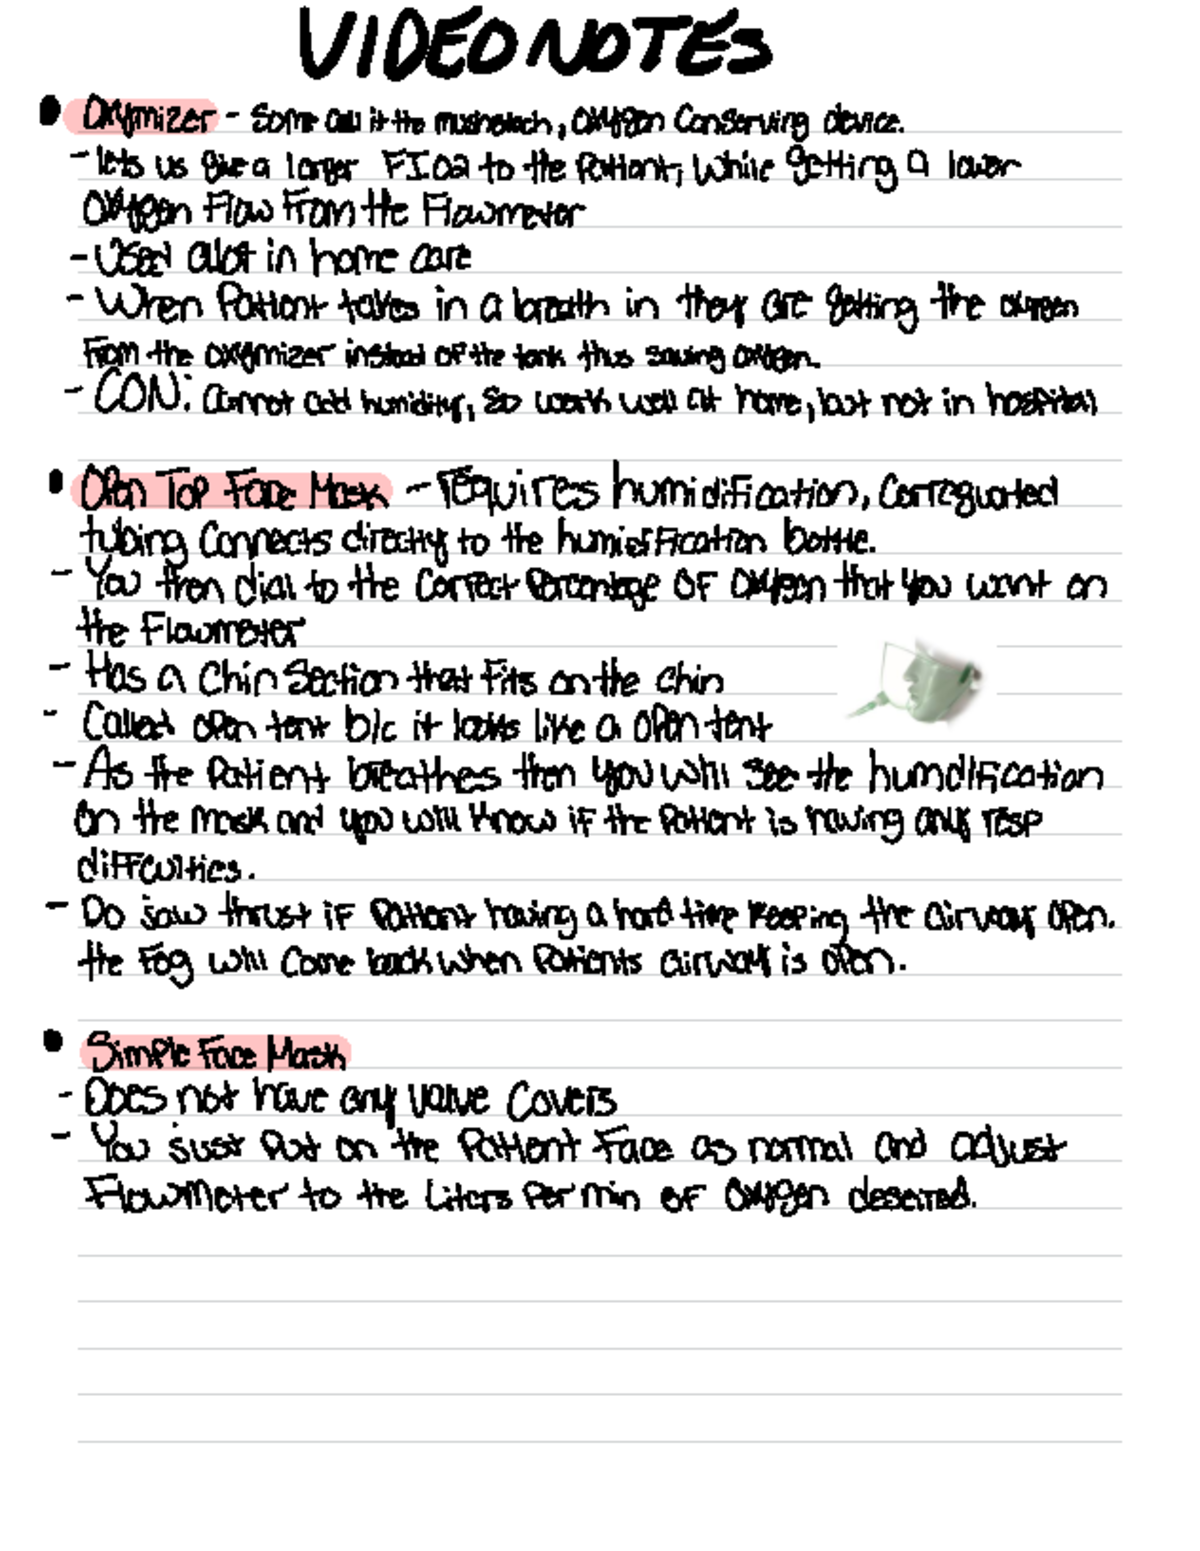 VIDEO NOTES
• Oxymizer - Some call it the mushstach, Oxygen Conserving device.
- lets us give a larger FIO2 to the Patient, While getting a lower
Oxygen Flow From the Flowmeter
- Used alot in home care
- When Patient takes in a breath in they are getting the oxygen
From the oxymizer instead of the tank thus saving oxygen.
- CON: Cannot add humidity, so work well at home, but not in hospital
• Open Top Face Mask - requires humidification, Corregurated
tubing Connects directly to the humidification bottle.
- You then dial to the Correct Percentage OF Oxygen that You want on
the Flowmeter
- Has a Chin Section that Fits on the chin
- Called open tent b/c it looks like a open tent
- As the Patient breathes then you will see the humdification
On the mask and you will know if the Patient is having any resp
diffculties.
- Do jaw thrust if Patient having a hard time keeping the airway open.
the Fog will Come back when Patients airway is open.
• Simple Face Mask
- Does not have any Valve Covers
- You just Put on the Patient Face as normal and adjust
Flowmeter to the Liters Per min of Oxygen deseired.